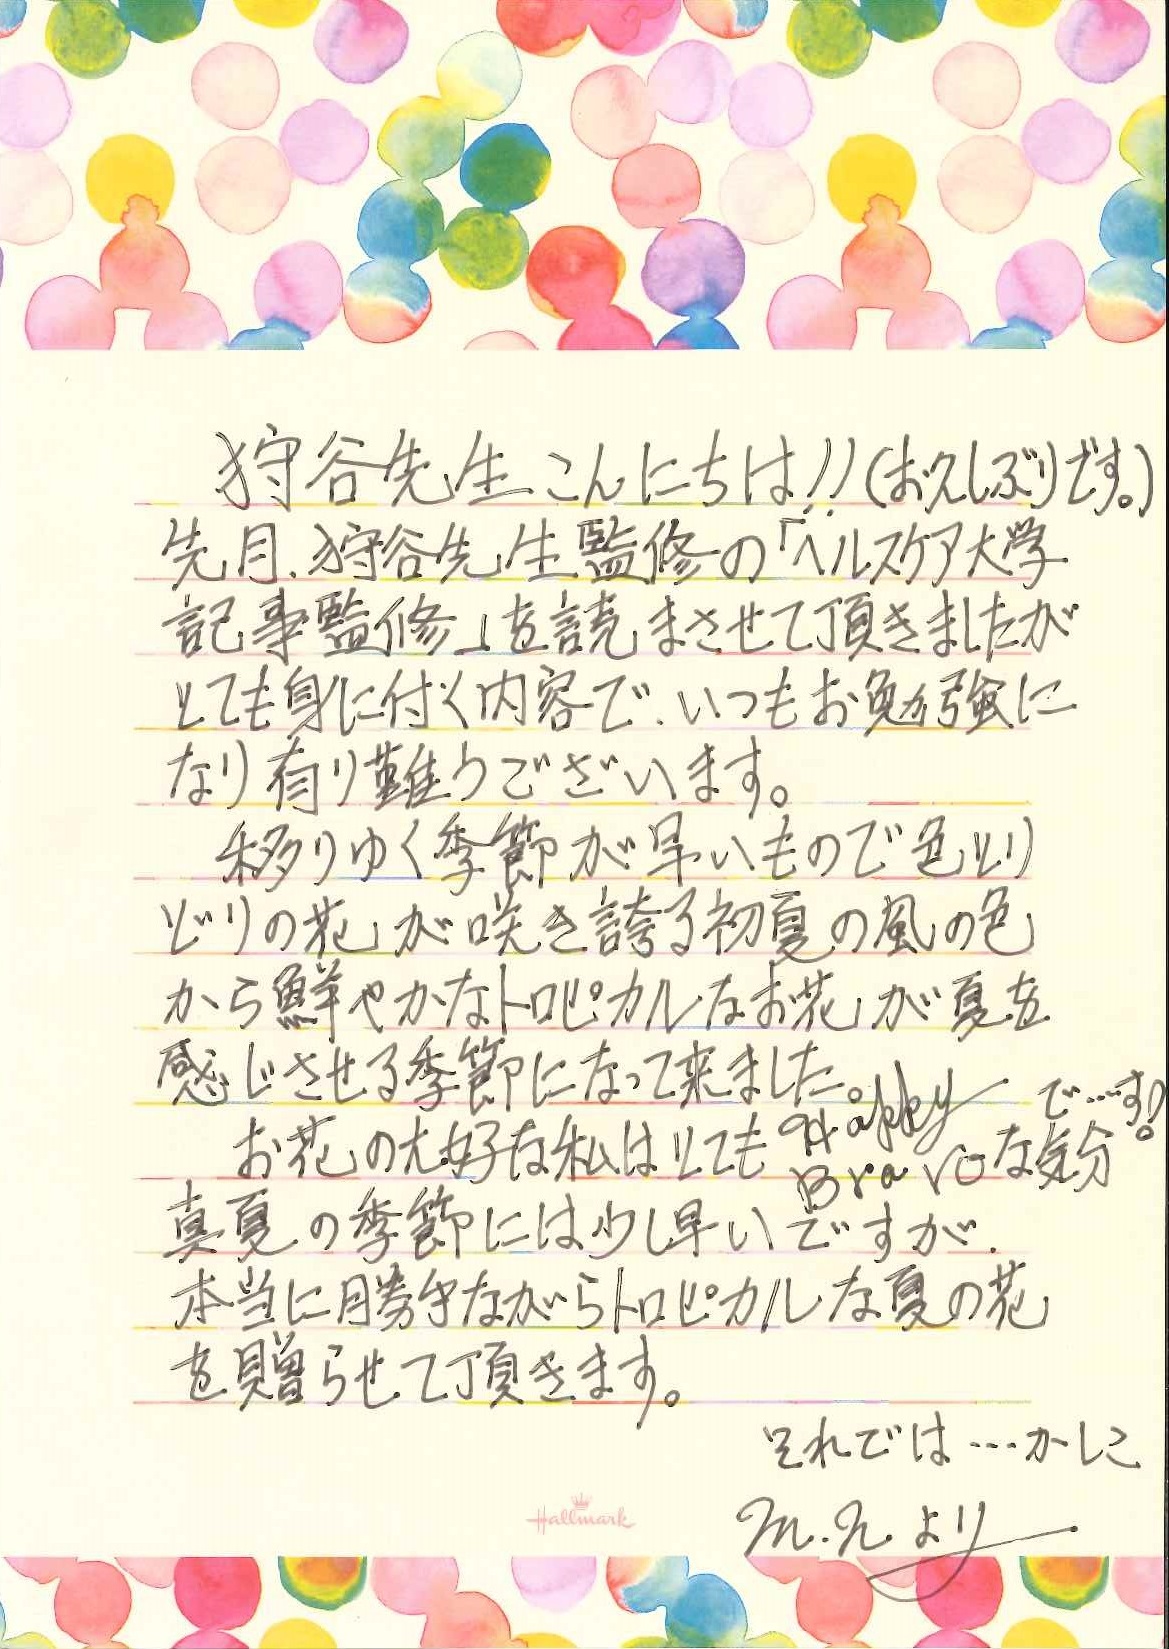 狩谷先生こんにちは!!(お久しぶりです。)
先月、狩谷先生監修の「ヘルスケア大学
記事監修」を読まさせて頂きましたが
とても身に付く内容で、いつもお勉強に
なり有り難うございます。
移りゆく季節が早いもので色とり
どりの花が咲き誇る初夏の風の色
から鮮やかなトロピカルなお花が夏を
感じさせる季節になって来ました。
お花の大好な私はとても Happy Bravoな気分で…す!
真夏の季節には少し早いですが、
本当に勝手ながらトロピカルな夏の花
を贈らせて頂きます。
それでは…かしこ
M.N.より
Hallmark